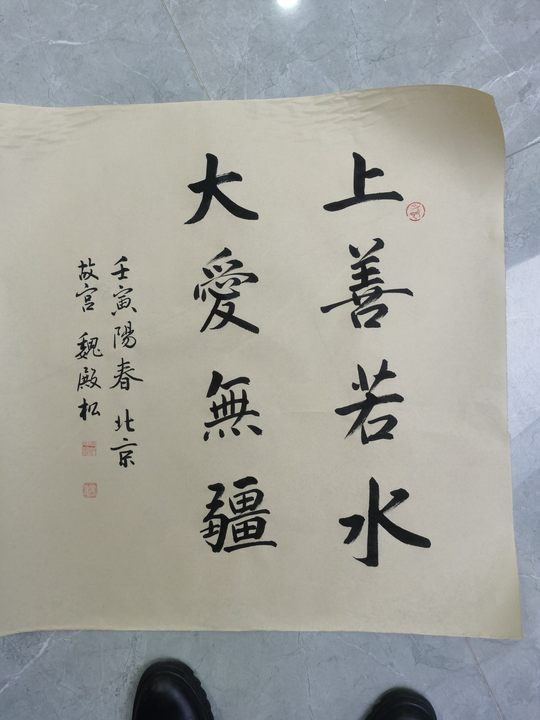 上善若水
大愛無疆
壬寅陽春 北京
故宮 魏殿松